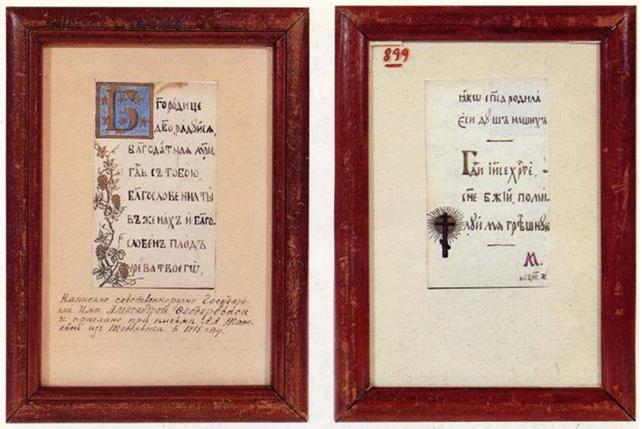 Богородице
дво, радуйсѧ,
благодатнаѧ мріе,
гдь с тобою,
благословенна ты
въ женахъ и благо
словенъ плодъ
чрева твоегѡ,
Написано собственноручно Государы-
ней Имп. Александрой Феодоровной
и прислано при письме А.А. Тане-
евой из Тобольска в 1918 году.
899
ꙗкѡ спса родила
еси душъ нашихъ
Гди Іисе Хрте,
сне Бжій, поми-
луй мѧ грѣшную
М.